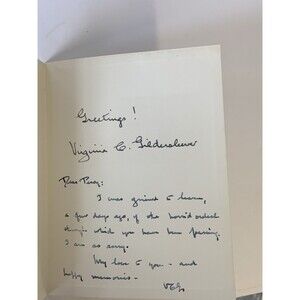 Greetings!
Virginia C. Gildersleeve
Dear Percy:
I was grieved to learn,
a few days ago, of the horrid ordeal
through which you have been passing.
I am so sorry.
My love to you - and
happy memories -
VCG